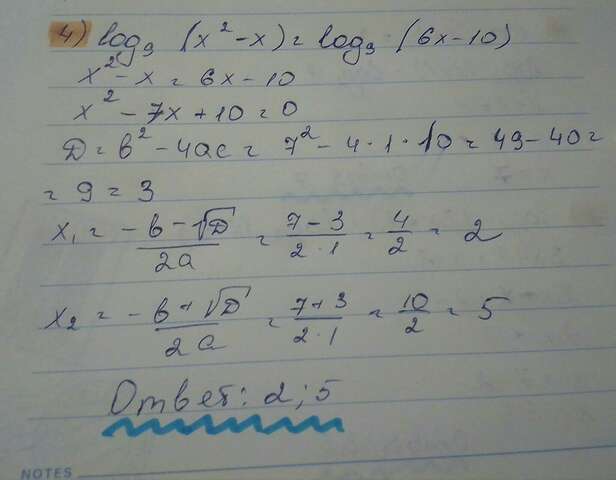 4) log₉ (x² - x) = log₉ (6x - 10)
x² - x = 6x - 10
x² - 7x + 10 = 0
D = b² - 4ac = 7² - 4 · 1 · 10 = 49 - 40 =
= 9 = 3
x₁ = -b - √D / 2a = 7 - 3 / 2 · 1 = 4 / 2 = 2
x₂ = -b + √D / 2a = 7 + 3 / 2 · 1 = 10 / 2 = 5
Ответ: 2; 5
NOTES